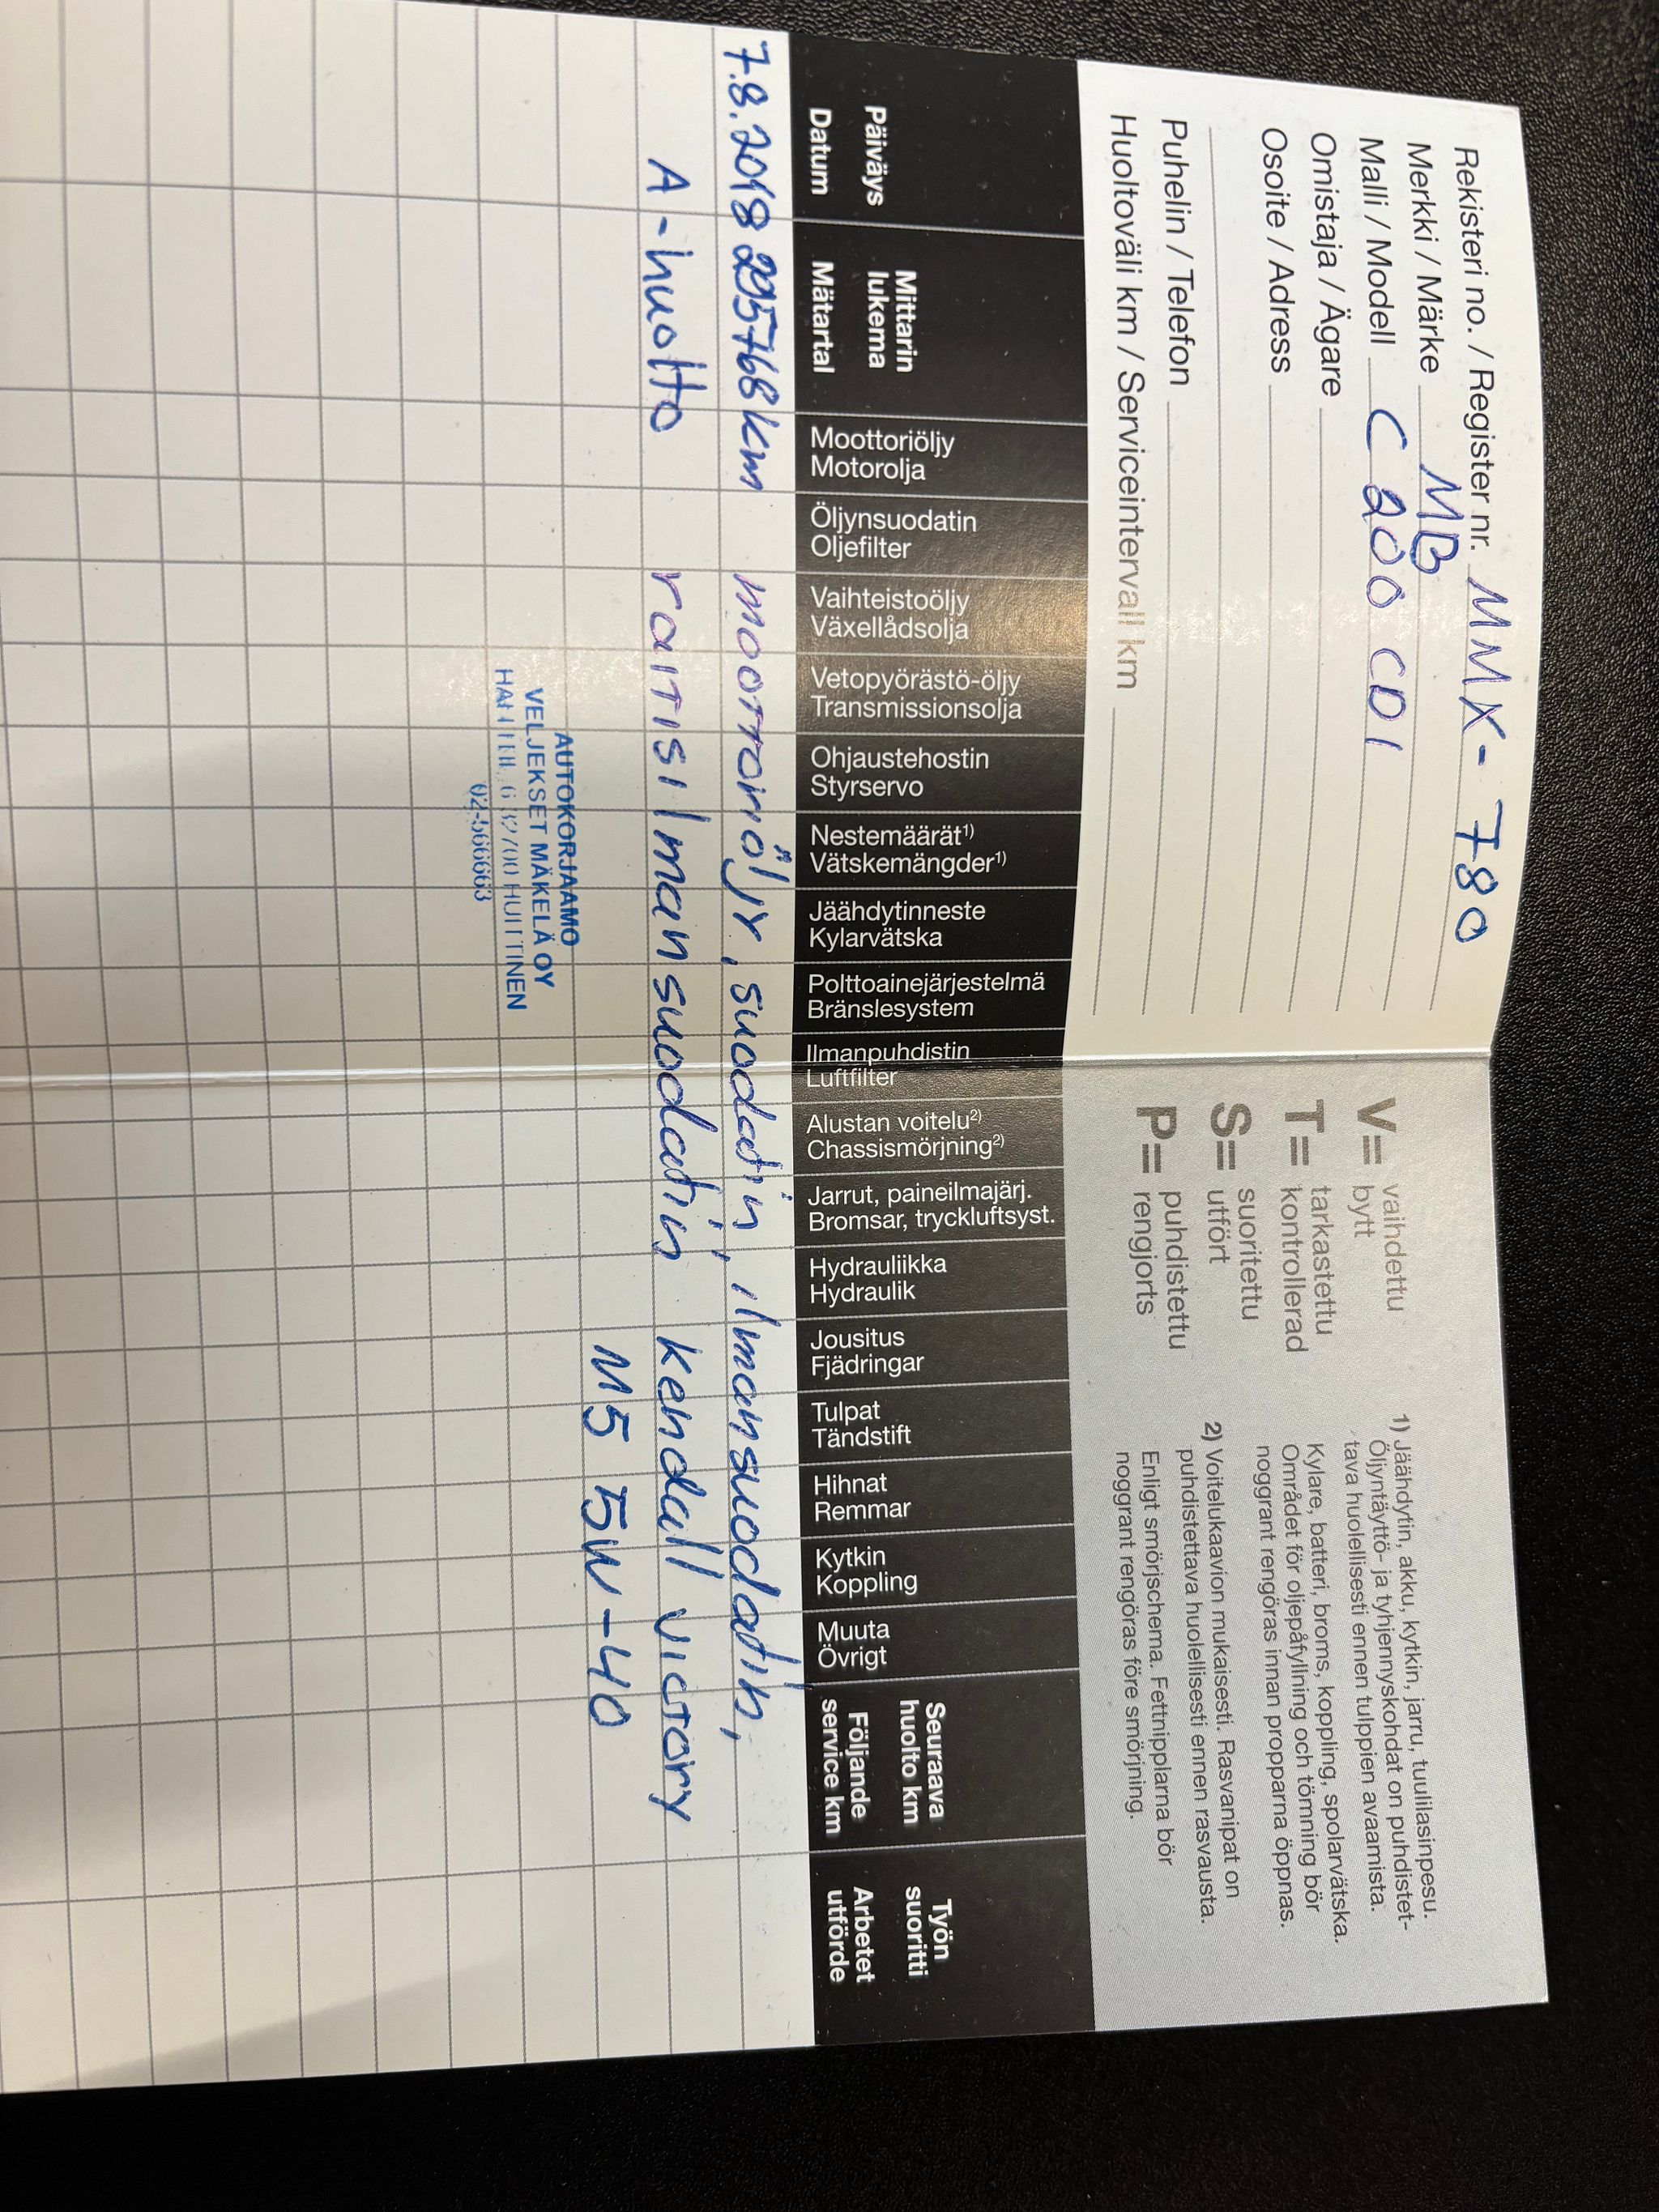 Rekisteri no. / Register nr. MMK-780
Merkki / Märke MB
Malli / Modell C 200 CDI
Omistaja / Ägare
Osoite / Adress
Puhelin / Telefon
Huoltoväli km / Serviceintervall km
V= vaihdettu
bytt
T= tarkastettu
kontrollerad
S= suoritettu
utfört
P= puhdistettu
rengjorts
1) Jäähdytin, akku, kytkin, jarru, tuulilasinpesu.
Öljyntäyttö- ja tyhjennyskohdat on puhdistet-
tava huolellisesti ennen tulppien avaamista.
Kylare, batteri, broms, koppling, spolarvätska.
Området för oljepåfyllning och tömning bör
noggrant rengöras innan propparna öppnas.
2) Voitelukaavion mukaisesti. Rasvanipat on
puhdistettava huolellisesti ennen rasvausta.
Enligt smörjschema. Fettnipplarna bör
noggrant rengöras före smörjning.
Päiväys
Datum
Mittarin
lukema
Mätartal
Moottoriöljy
Motorolja
Öljynsuodatin
Oljefilter
Vaihteistoöljy
Växellådsolja
Vetopyörästö-öljy
Transmissionsolja
Ohjaustehostin
Styrservo
Nestemäärät1)
Vätskemängder1)
Jäähdytinneste
Kylarvätska
Polttoainejärjestelmä
Bränslesystem
Ilmanpuhdistin
Luftfilter
Alustan voitelu2)
Chassismörjning2)
Jarrut, paineilmajärj.
Bromsar, tryckluftsyst.
Hydrauliikka
Hydraulik
Jousitus
Fjädringar
Tulpat
Tändstift
Hihnat
Remmar
Kytkin
Koppling
Muuta
Övrigt
Seuraava
huolto km
Följande
service km
Työn
suoritti
Arbetet
utförde
7.8.2018 295768km moottoriöljy, suodatin, ilmansuodatin,
A-huolto raitisilmansuodatin Kendall victory
M5 5W-40
AUTOKORJAAMO
VELJEKSET MÄKELÄ OY
HUITTINEN
02-566663